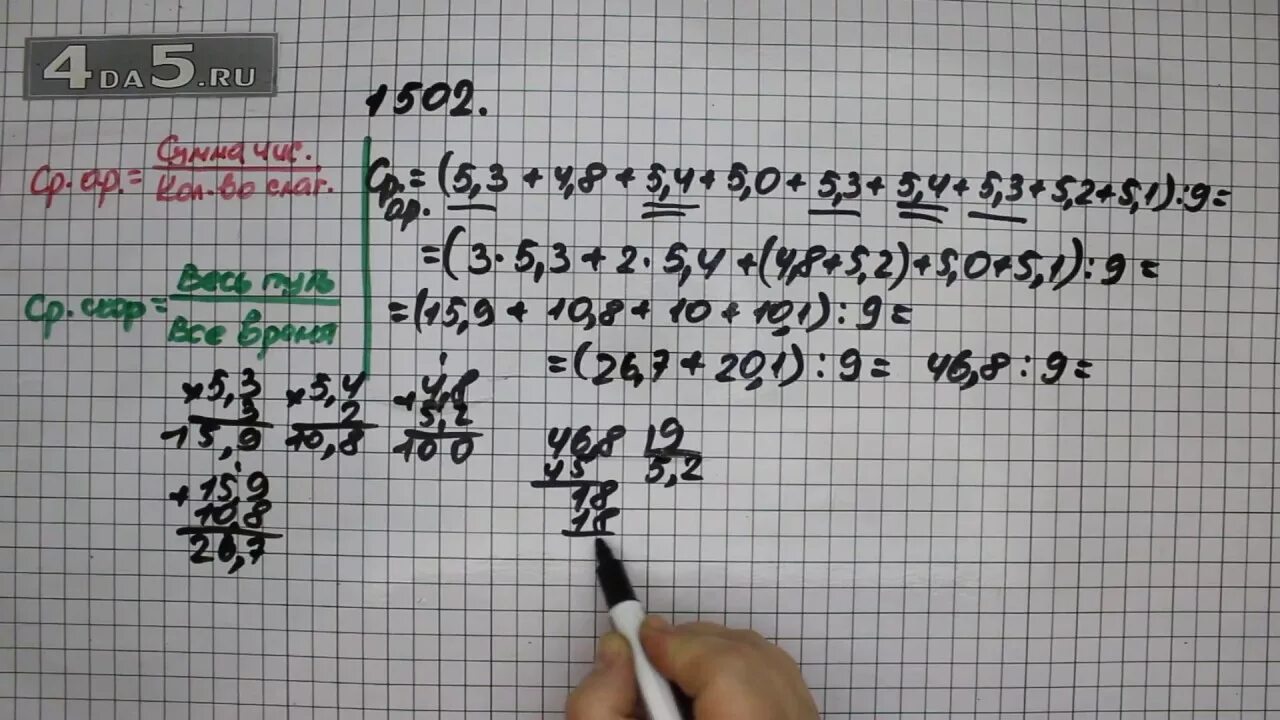 4DA5.RU
1502.
Ср. ар. = Сумма чис.
Кол-во слаг.
Ср. скор = Весь путь
Все время
Ср. ар. = (5,3 + 4,8 + 5,4 + 5,0 + 5,3 + 5,4 + 5,3 + 5,2 + 5,1) : 9 =
= (3 · 5,3 + 2 · 5,4 + (4,8 + 5,2) + 5,0 + 5,1) : 9 =
= (15,9 + 10,8 + 10 + 10,1) : 9 =
= (26,7 + 20,1) : 9 = 46,8 : 9 =
× 5,3
3
15,9
× 5,4
2
10,8
1
+ 4,8
5,2
10 0
1
+ 15,9
10,8
26,7
46,8 | 9
45 5,2
18
18